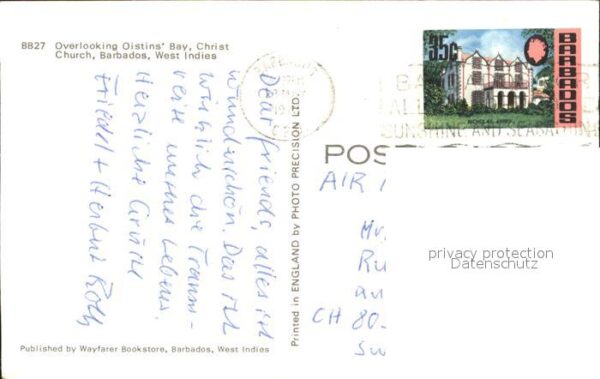 BB27 Overlooking Oistins' Bay, Christ
Church, Barbados, West Indies
Dear friends, alles ist
wunderschön. Das ist
wirklich die Traum-
reise unseres Lebens.
Herzliche Grüsse
Friedel + Herbert Roth
Published by Wayfarer Bookstore, Barbados, West Indies
Printed in ENGLAND by PHOTO PRECISION LTD.
35c
BARBADOS
SUNSHINE AND SEABATHING
POS
AIR
CH 80
privacy protection
Datenschutz